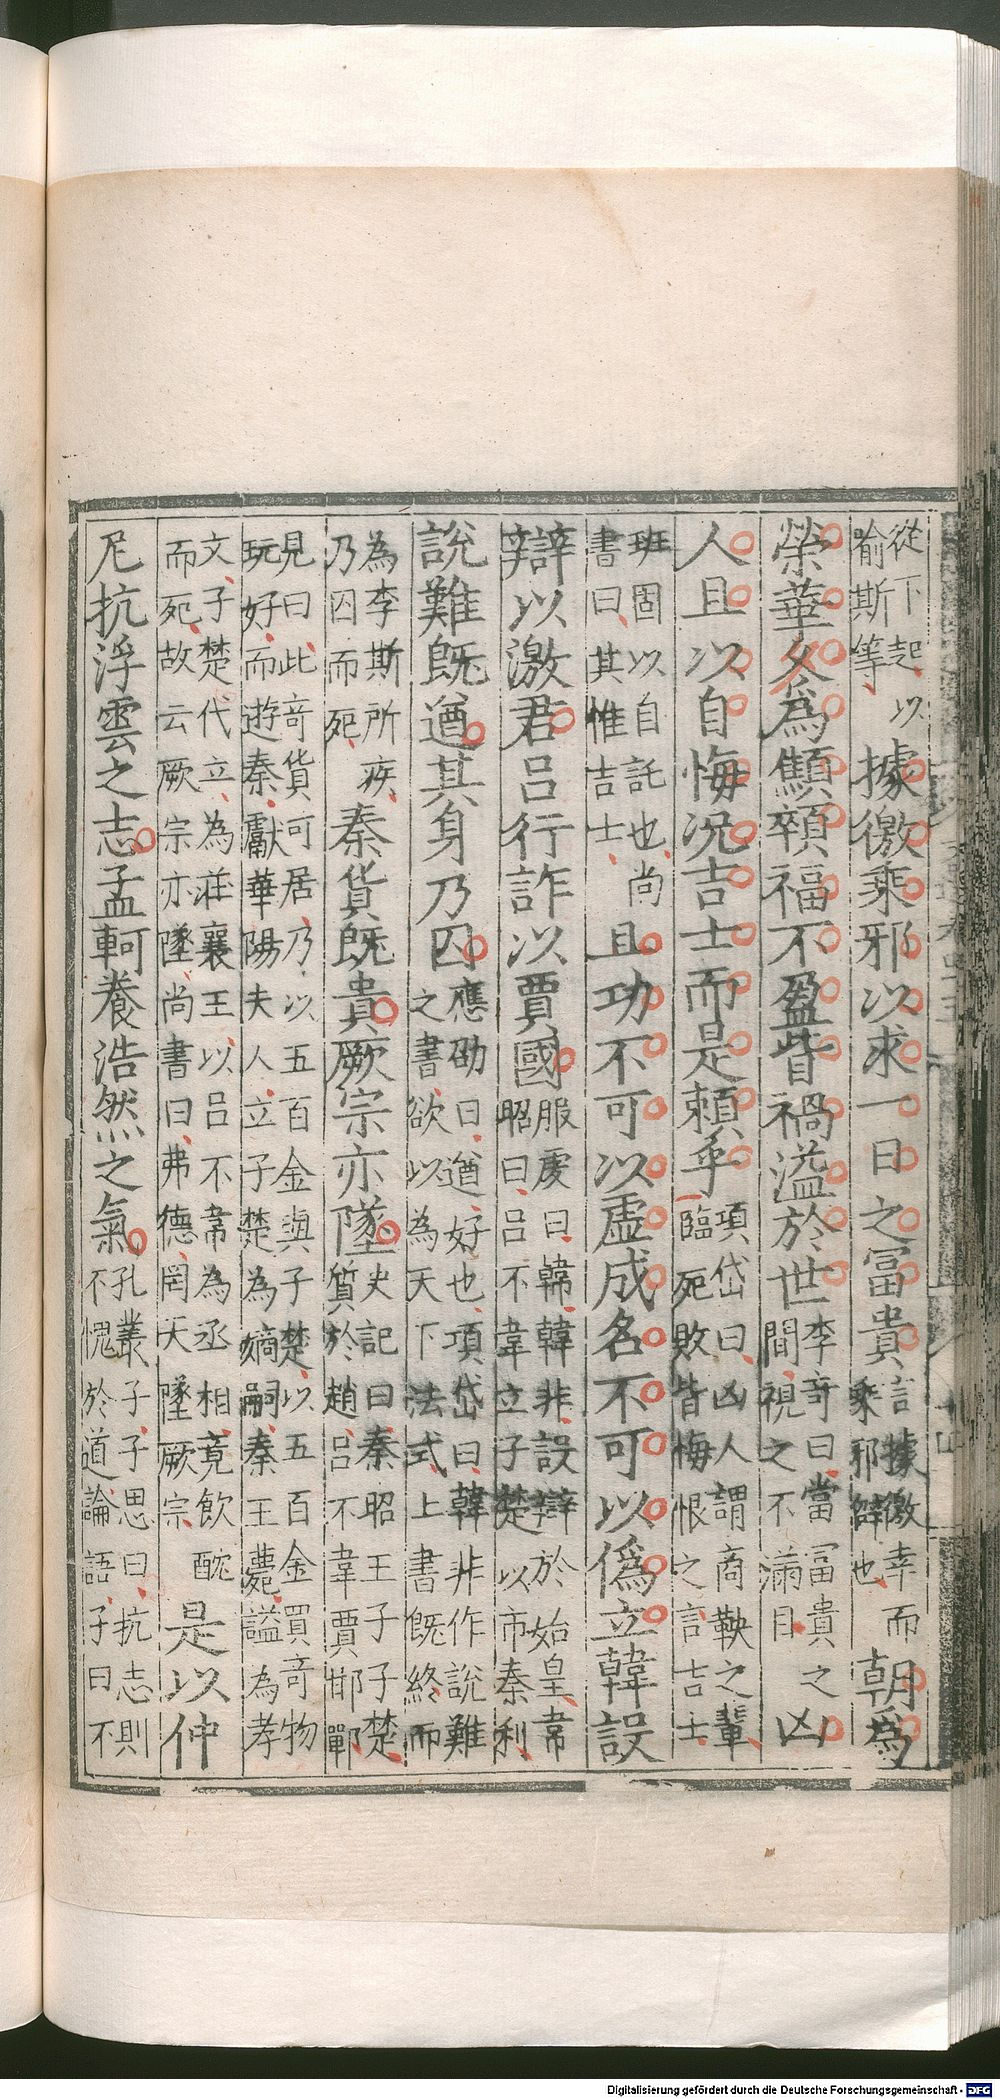 從下起以喻斯等據徼乘邪以求一日之冨貴言據徼幸而乘邪僻也朝爲
榮華夕爲顦顇福不盈眥禍溢於世李竒曰當冨貴之間視之不滿目凶
人且以自悔况吉士而是賴乎項岱曰凶人謂商鞅之輩臨死敗皆悔恨之言吉士
班固以自託也尚書曰其惟吉士且功不可以虚成名不可以僞立韓設
辯以激君吕行詐以賈國服虔曰韓韓非設辯於始皇韋昭曰吕不韋立子楚以市秦利
説難既遒其身乃囚應劭曰遒好也項岱曰韓非作説難之書欲以為天下法式上書既終而
為李斯所疾乃囚而死秦貨既貴厥宗亦墜史記曰秦昭王子子楚質於趙吕不韋賈邯鄲
見曰此竒貨可居乃以五百金與子楚以五百金買竒物玩好而遊秦獻華陽夫人立子楚為嫡嗣秦王薨謚為孝
文子楚代立為莊襄王以吕不韋為丞相竟飲酖而死故云厥宗亦墜尚書曰弗德罔天墜厥宗是以仲
尼抗浮雲之志孟軻養浩然之氣孔叢子子思曰抗志則不愧於道論語子曰不
Digitalisierung gefördert durch die Deutsche Forschungsgemeinschaft - DFG